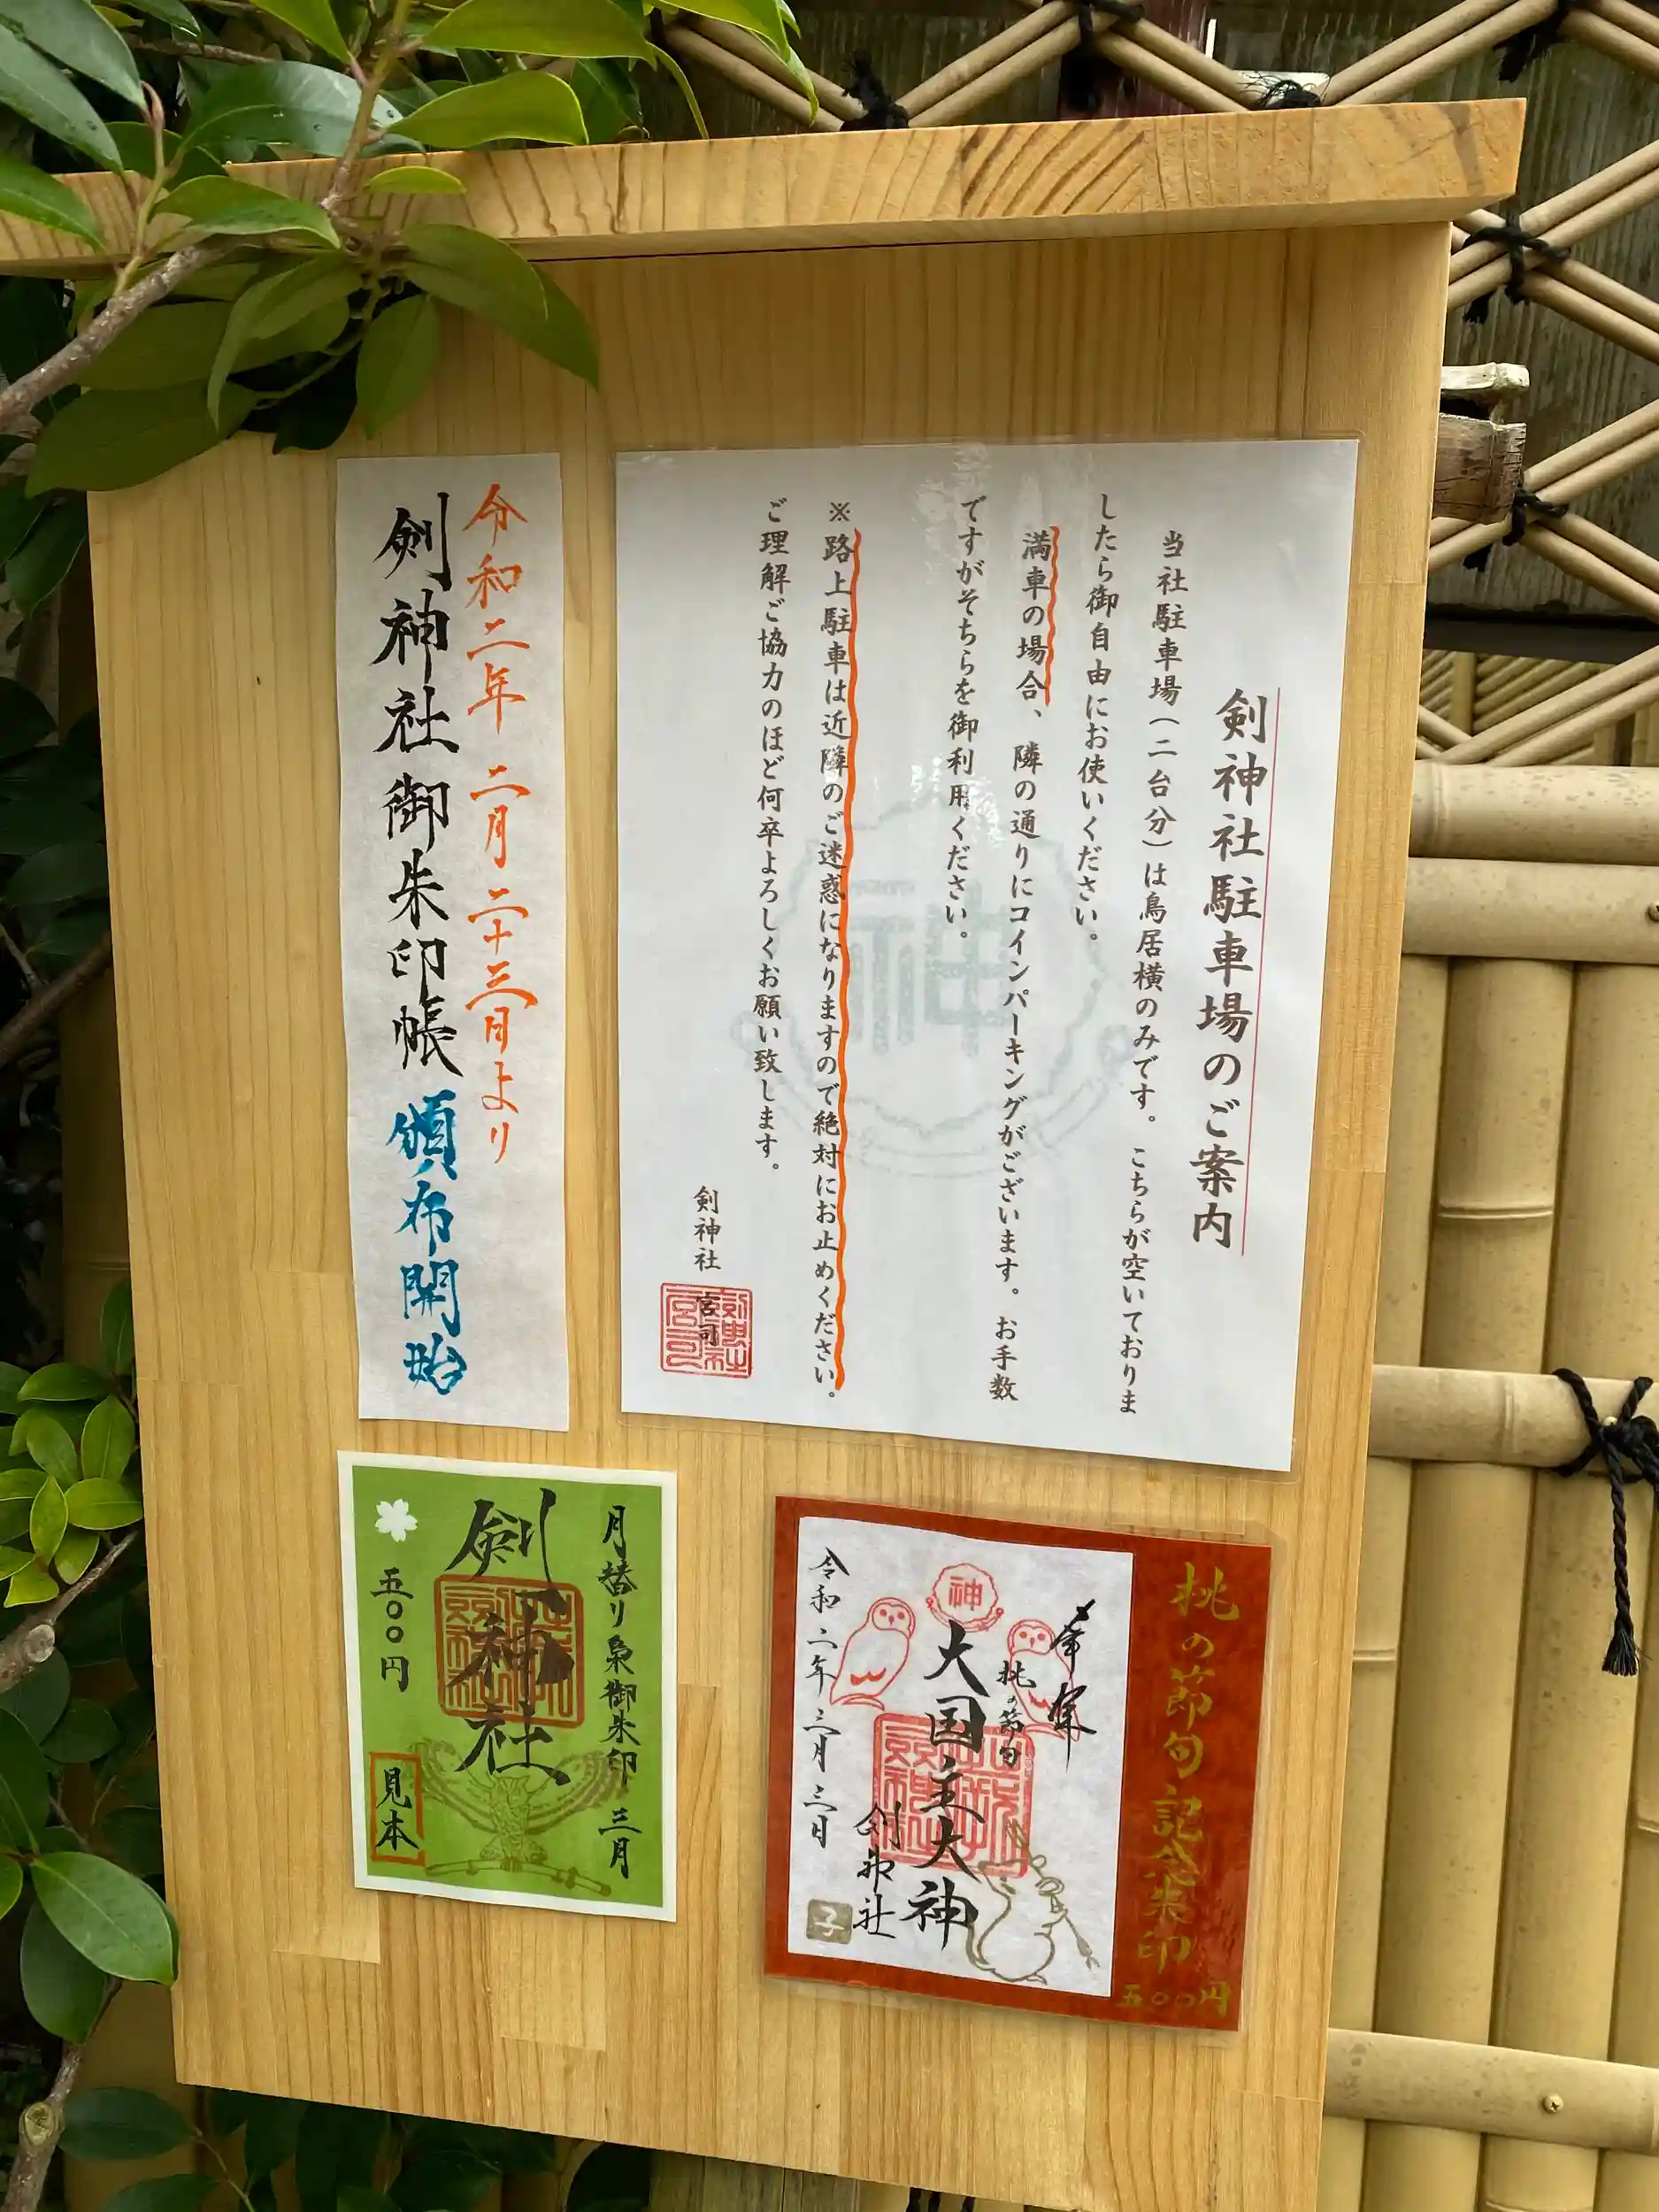 剣神社駐車場のご案内
当社駐車場（二台分）は鳥居横のみです。こちらが空いておりま
したら御自由にお使いください。
満車の場合、隣の通りにコインパーキングがございます。お手数
ですがそちらを御利用ください。
※路上駐車は近隣のご迷惑になりますので絶対にお止めください。
ご理解ご協力のほど何卒よろしくお願い致します。
剣神社
宮司
令和二年 二月二十三日より
剣神社御朱印帳 頒布開始
桃の節句記念朱印
五〇〇円
奉拝
桃の節句
神
大国主大神
剣神社
令和二年三月三日
子
月替り梟御朱印 三月
剣神社
五〇〇円
見本